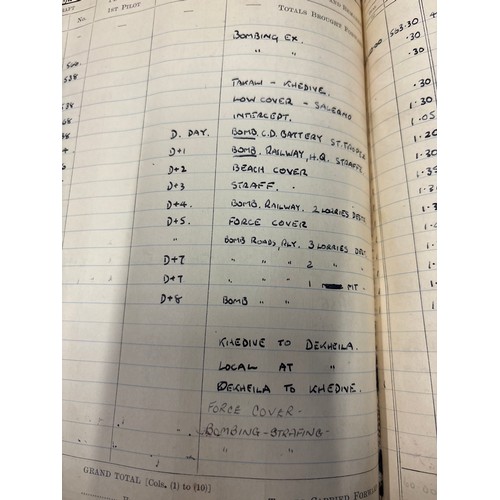 No. 1ST PILOT TOTALS BROUGHT FORW
BOMBING EX. 503.30
" " .30
TAKALI - KHEDIVE. .30
LOW COVER - SALERNO 1.30
INTERCEPT. 1.05
D. DAY. BOMB C.D. BATTERY ST. TROPEZ 1.20
D+1 BOMB. RAILWAY, H.Q. STRAFF. 1.30
D+2 BEACH COVER
D+3 STRAFF.
D+4. BOMB. RAILWAY. 2 LORRIES DEST
D+5. FORCE COVER
" BOMB ROADS, RLY. 3 LORRIES DEST.
D+7 " " " 2 "
D+7 " - " 1 MT -
D+8 BOMB " "
KHEDIVE TO DEKHEILA.
LOCAL AT "
DEKHEILA TO KHEDIVE.
FORCE COVER -
BOMBING - STRAFING -
GRAND TOTAL [Cols. (1) to (10)]
CARRIED FORWA